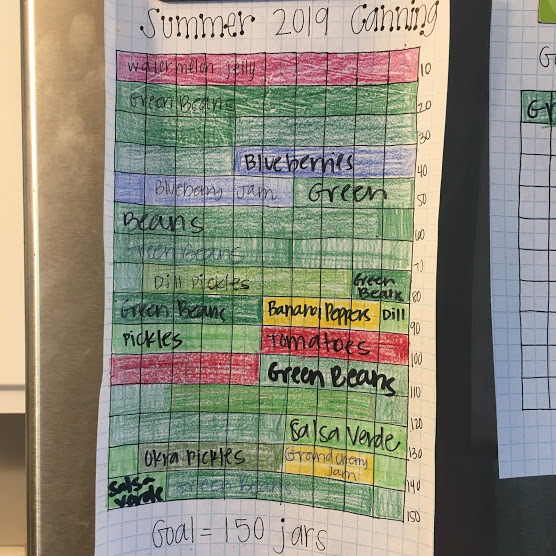 Summer 2019 Canning
watermelon jelly 10
Green Beans 20
30
Blueberries 40
Blueberry Jam Green 50
Beans 60
Green Beans 70
Dill Pickles Green Beans 80
Green Beans Banana Peppers Dill 90
Pickles Tomatoes 100
Green Beans 110
120
Salsa Verde 130
Okra Pickles Ground Cherry Jam 140
Salsa verde Green Beans 150
Goal = 150 jars